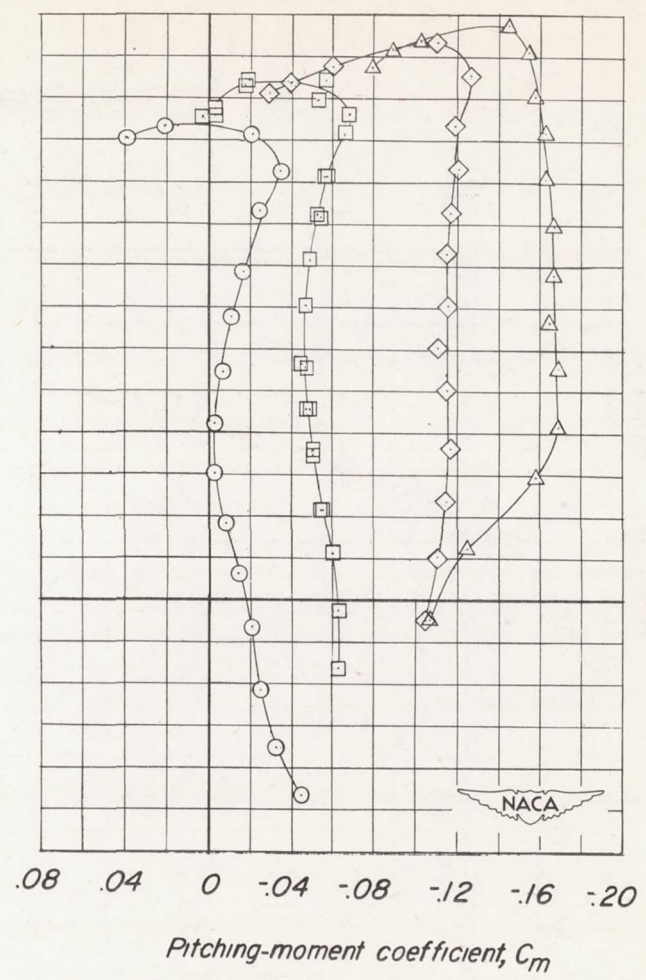 NACA
.08 .04 0 -.04 -.08 -.12 -.16 -.20
Pitching-moment coefficient, Cm